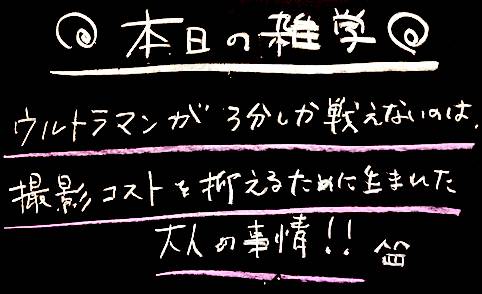 本日の雑学
ウルトラマンが3分しか戦えないのは、
撮影コストを抑えるために生まれた
大人の事情!!